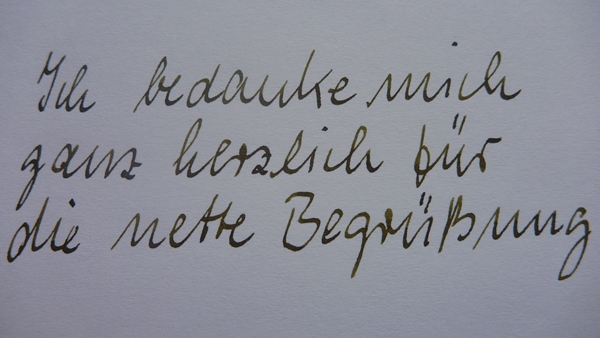 Ich bedanke mich
ganz herzlich für
die nette Begrüßung